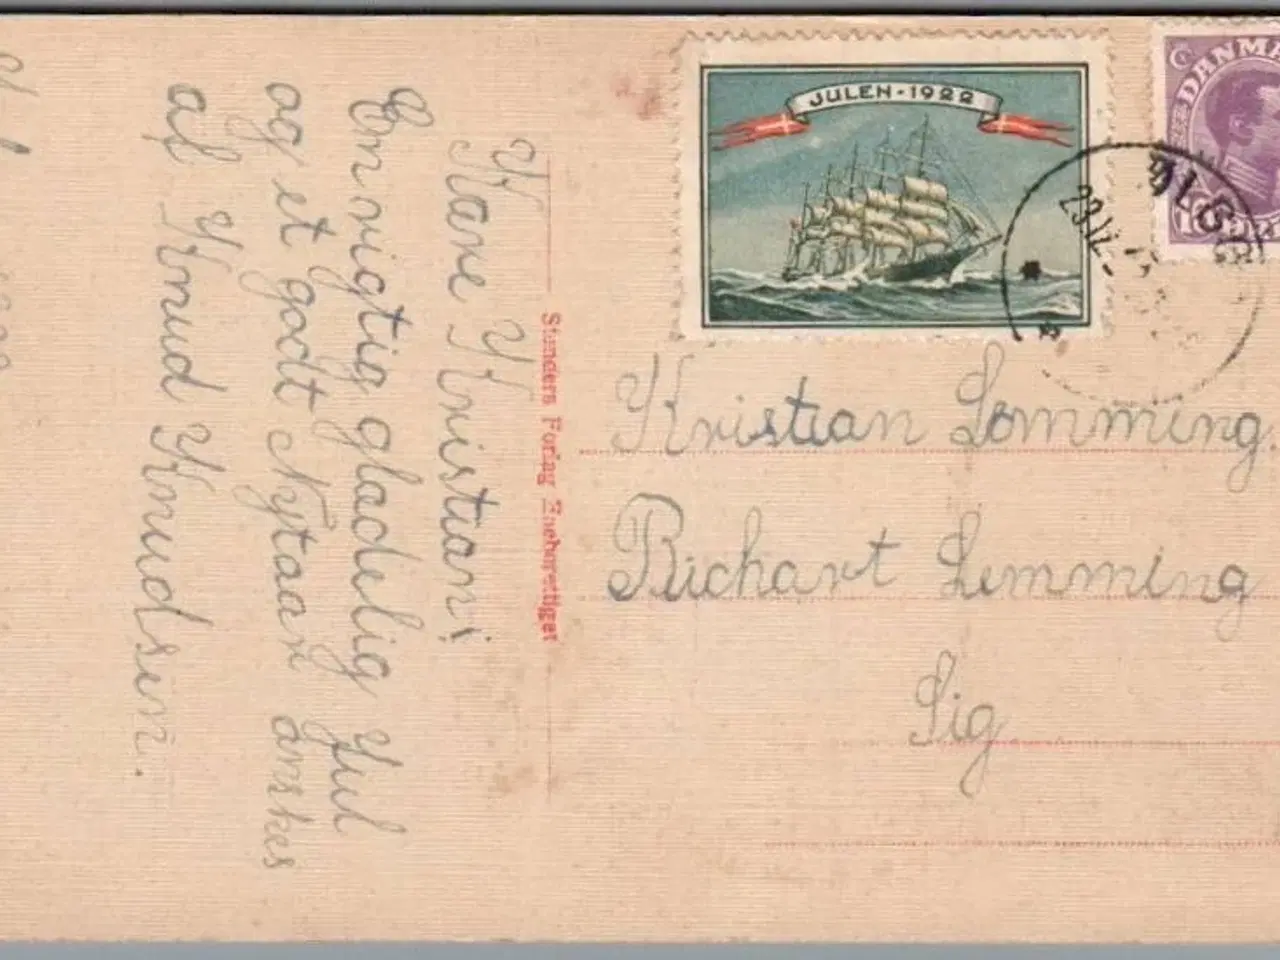 Kære Kristian!
En rigtig glædelig Jul
og et godt Nytaar ønskes
af Knud Knudsen.
Stenders Forlag Eneberettiget
JULEN-1922
DANMA
10
Kristian Lemming
Richart Lemming
Sig